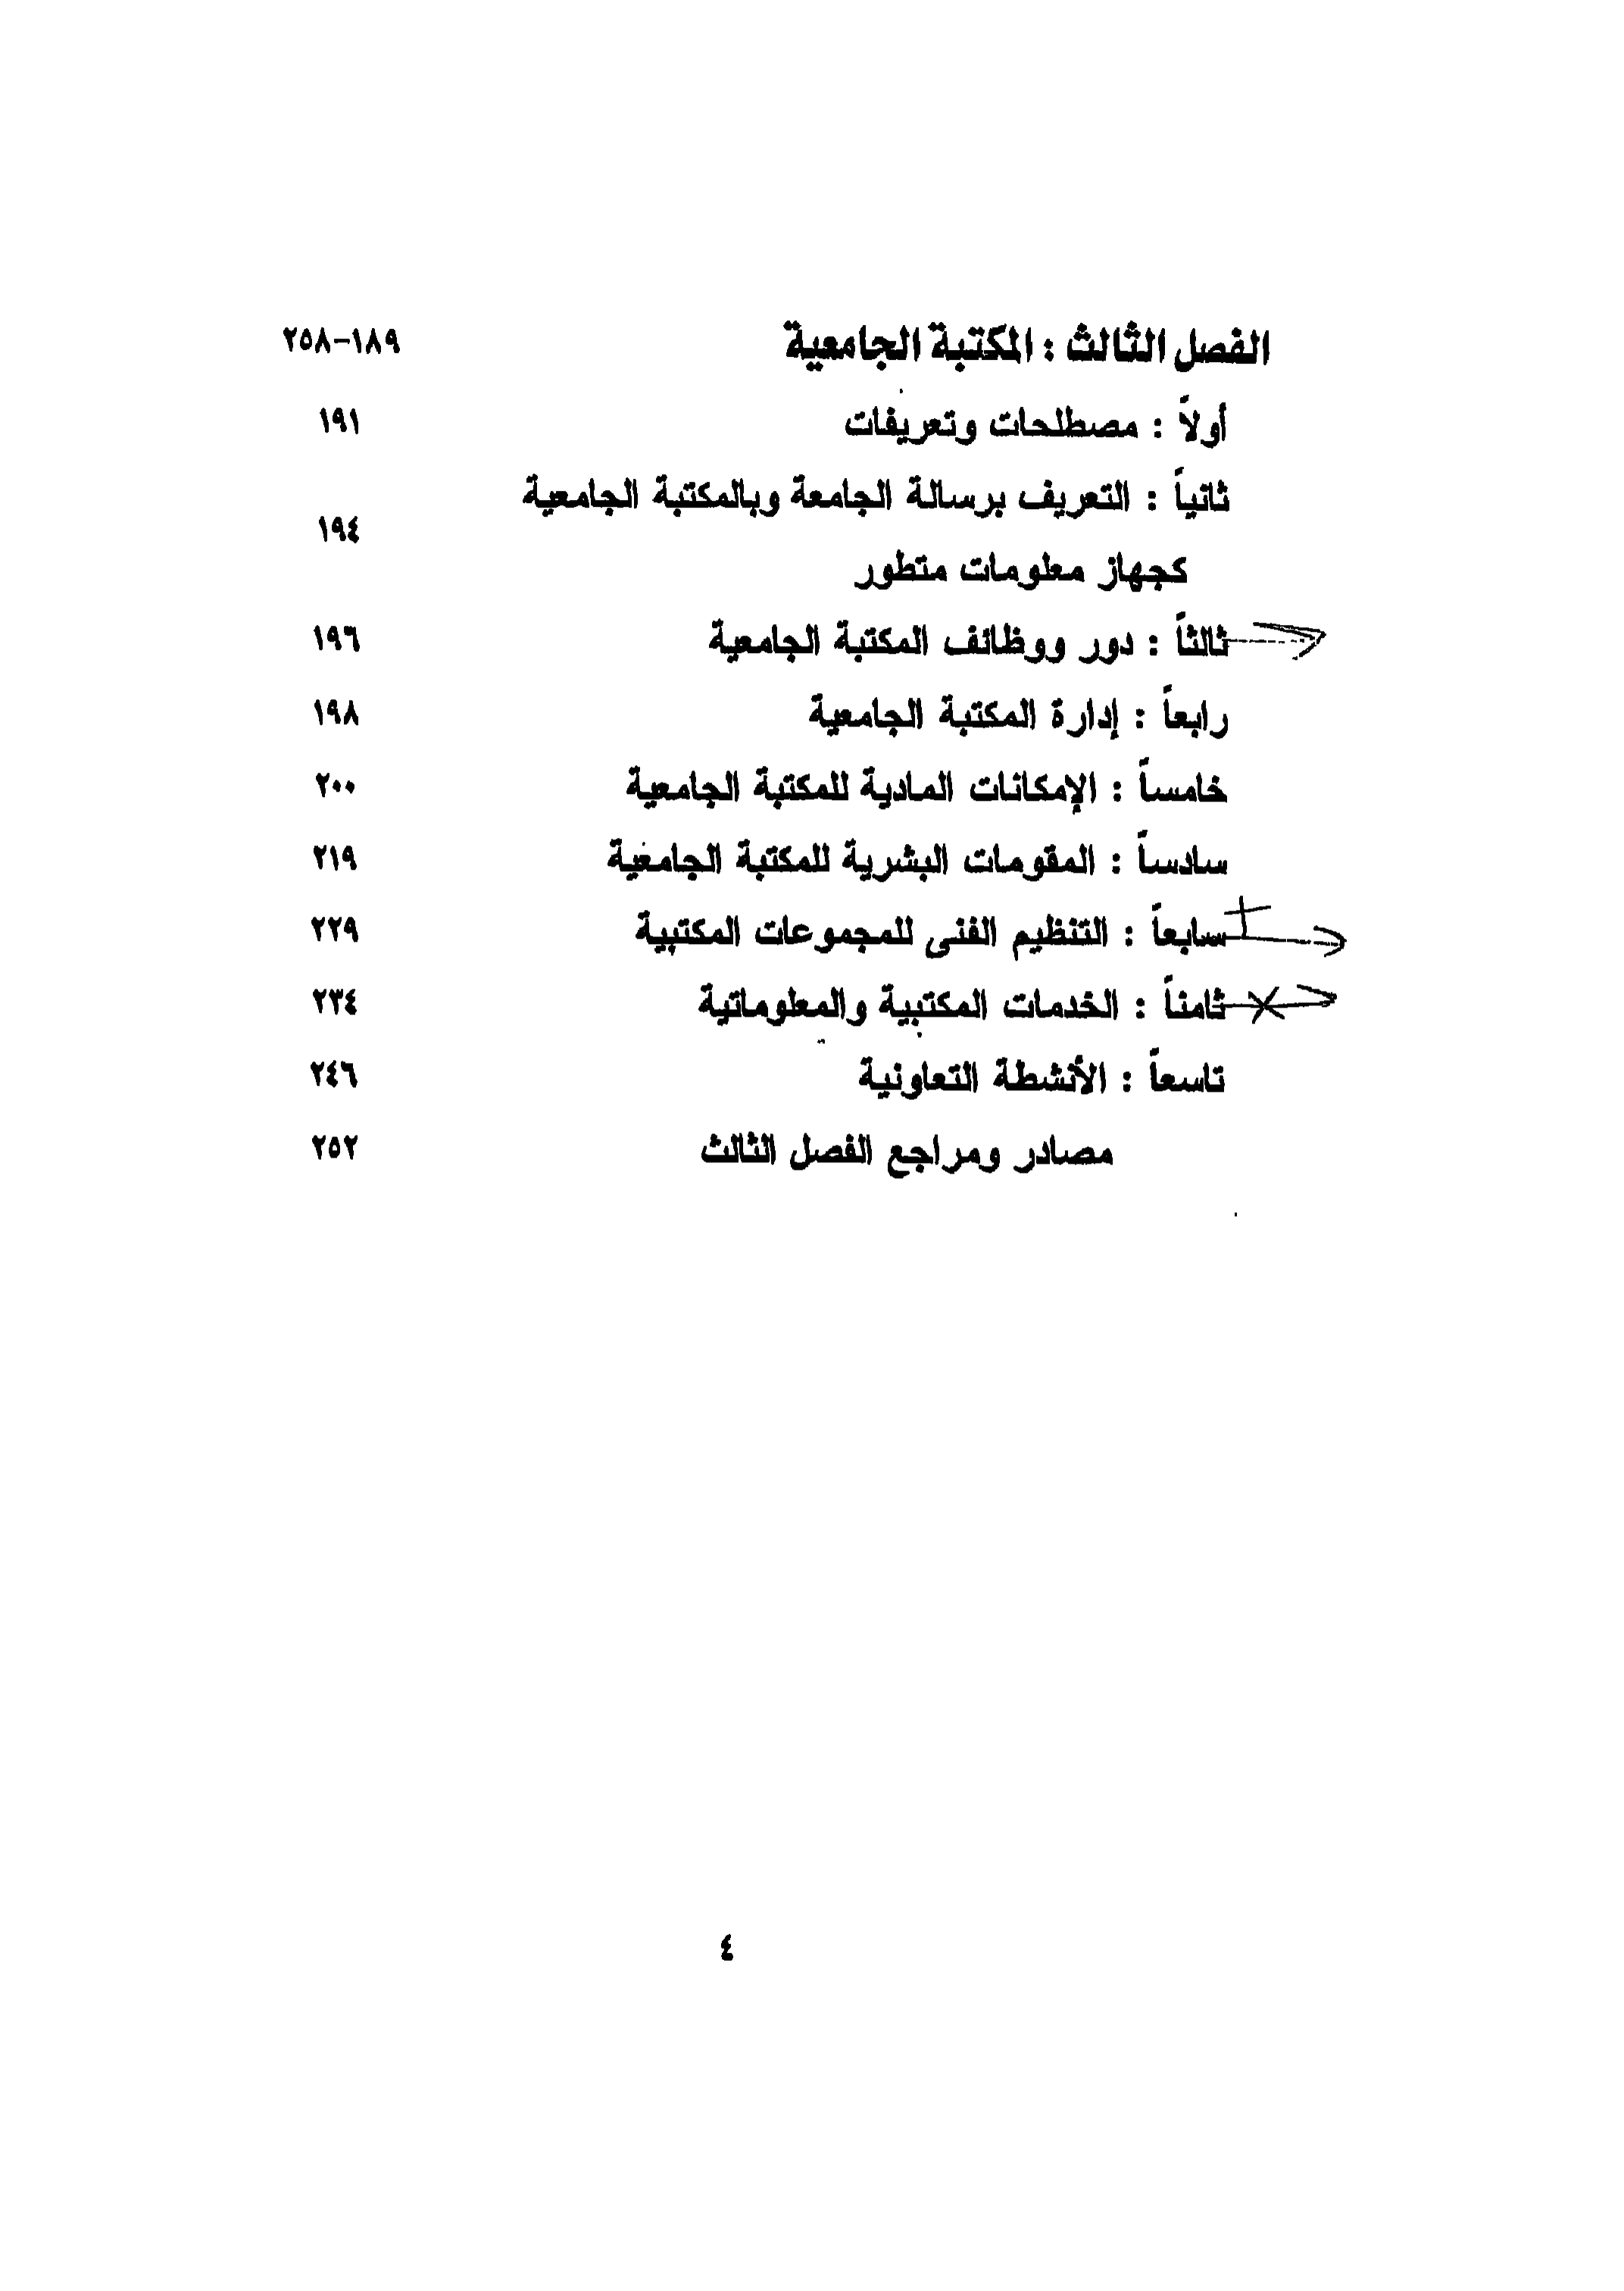 الفصل الثالث : المكتبة الجامعية ١٨٩-٢٥٨
أولاً : مصطلحات وتعريفات ١٩١
ثانياً : التعريف برسالة الجامعة وبالمكتبة الجامعية
كجهاز معلومات متطور ١٩٤
ثالثاً : دور ووظائف المكتبة الجامعية ١٩٦
رابعاً : إدارة المكتبة الجامعية ١٩٨
خامساً : الإمكانات المادية للمكتبة الجامعية ٢٠٠
سادساً : المقومات البشرية للمكتبة الجامعية ٢١٩
سابعاً : التنظيم الفنى للمجموعات المكتبية ٢٢٩
ثامناً : الخدمات المكتبية والمعلوماتية ٢٣٤
تاسعاً : الأنشطة التعاونية ٢٤٦
مصادر ومراجع الفصل الثالث ٢٥٢
٤